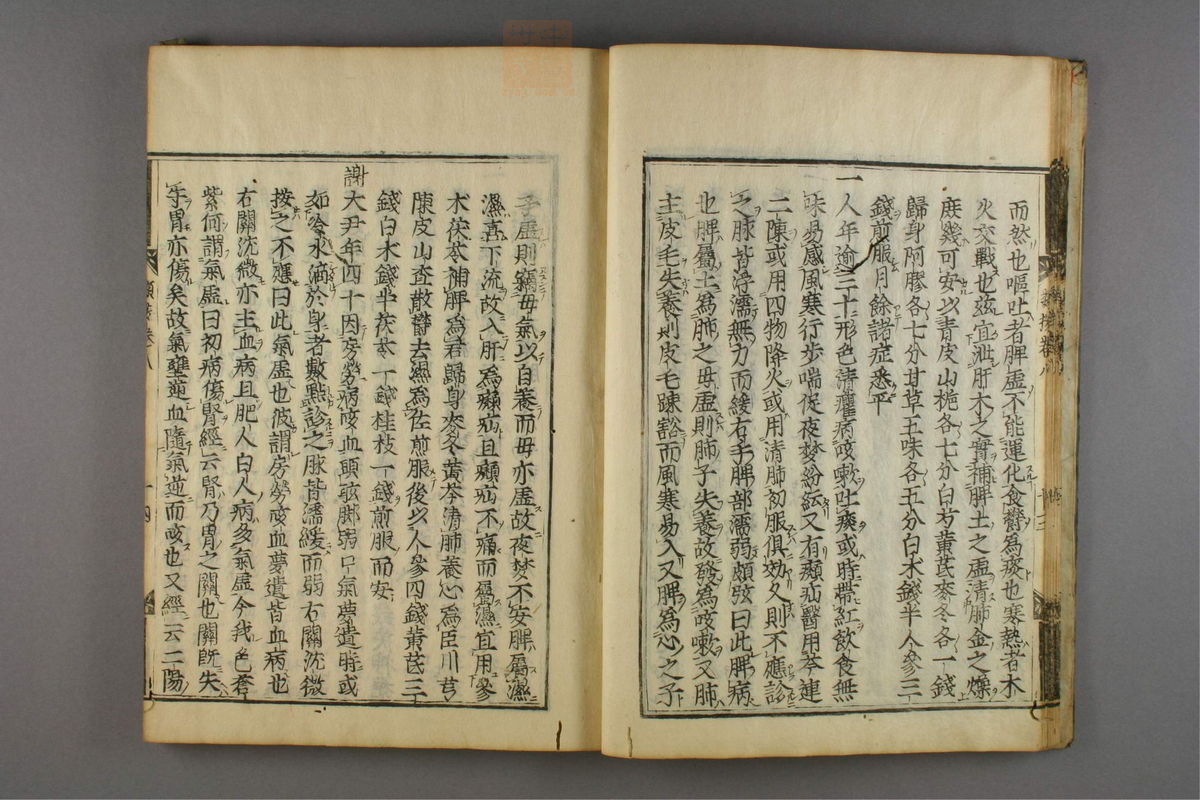 而然也嘔吐者脾虛不能運化食鬱為痰也寒熱者木
火交戰也茲宜泄肝木之實補脾土之虛清肺金之燥
庻幾可安以青皮山梔各七分白芍黃芪麥冬各一錢
歸身阿膠各七分甘草五味各五分白朮錢半人參三
錢煎服月餘諸症悉平
一人年逾三十形色清癯病咳嗽吐痰或時帶紅飲食無
味易感風寒行步喘促夜夢紛紜又有癩疝醫用芩連
二陳或用四物降火或用清肺初服俱効久則不應診
之脉皆浮濡無力而緩右手脾部濡弱頗弦曰此脾病
也脾屬土為肺之母虛則肺子失養故發為咳嗽又肺
主皮毛失養則皮毛踈豁而風寒易入又脾為心之子
子虛則竊母氣以自養而母亦虛故夜梦不安脾屬濕
濕喜下流故入肝為癩疝且癩疝不痛而屬濕宜用參
术茯苓補脾為君歸身麥冬黃芩清肺養心為臣川芎
陳皮山查散鬱去濕為佐煎服後以人參四錢黃芪三
錢白朮錢半茯苓一錢桂枝一錢煎服而安
謝大尹年四十因房勞病咳血頭眩脚弱口氣夢遺時或
如冷水滴於身者數點診之脉皆濡緩而弱右關沈微
按之不應曰此氣虛也彼謂房勞咳血夢遺皆血病也
右關沈微亦主血病且肥人白人病多氣虛今我色蒼
紫何謂氣虛曰初病傷腎經云腎乃胃之關也關既失
守胃亦傷矣故氣壅逆血隨氣逆而咳也又經云二陽